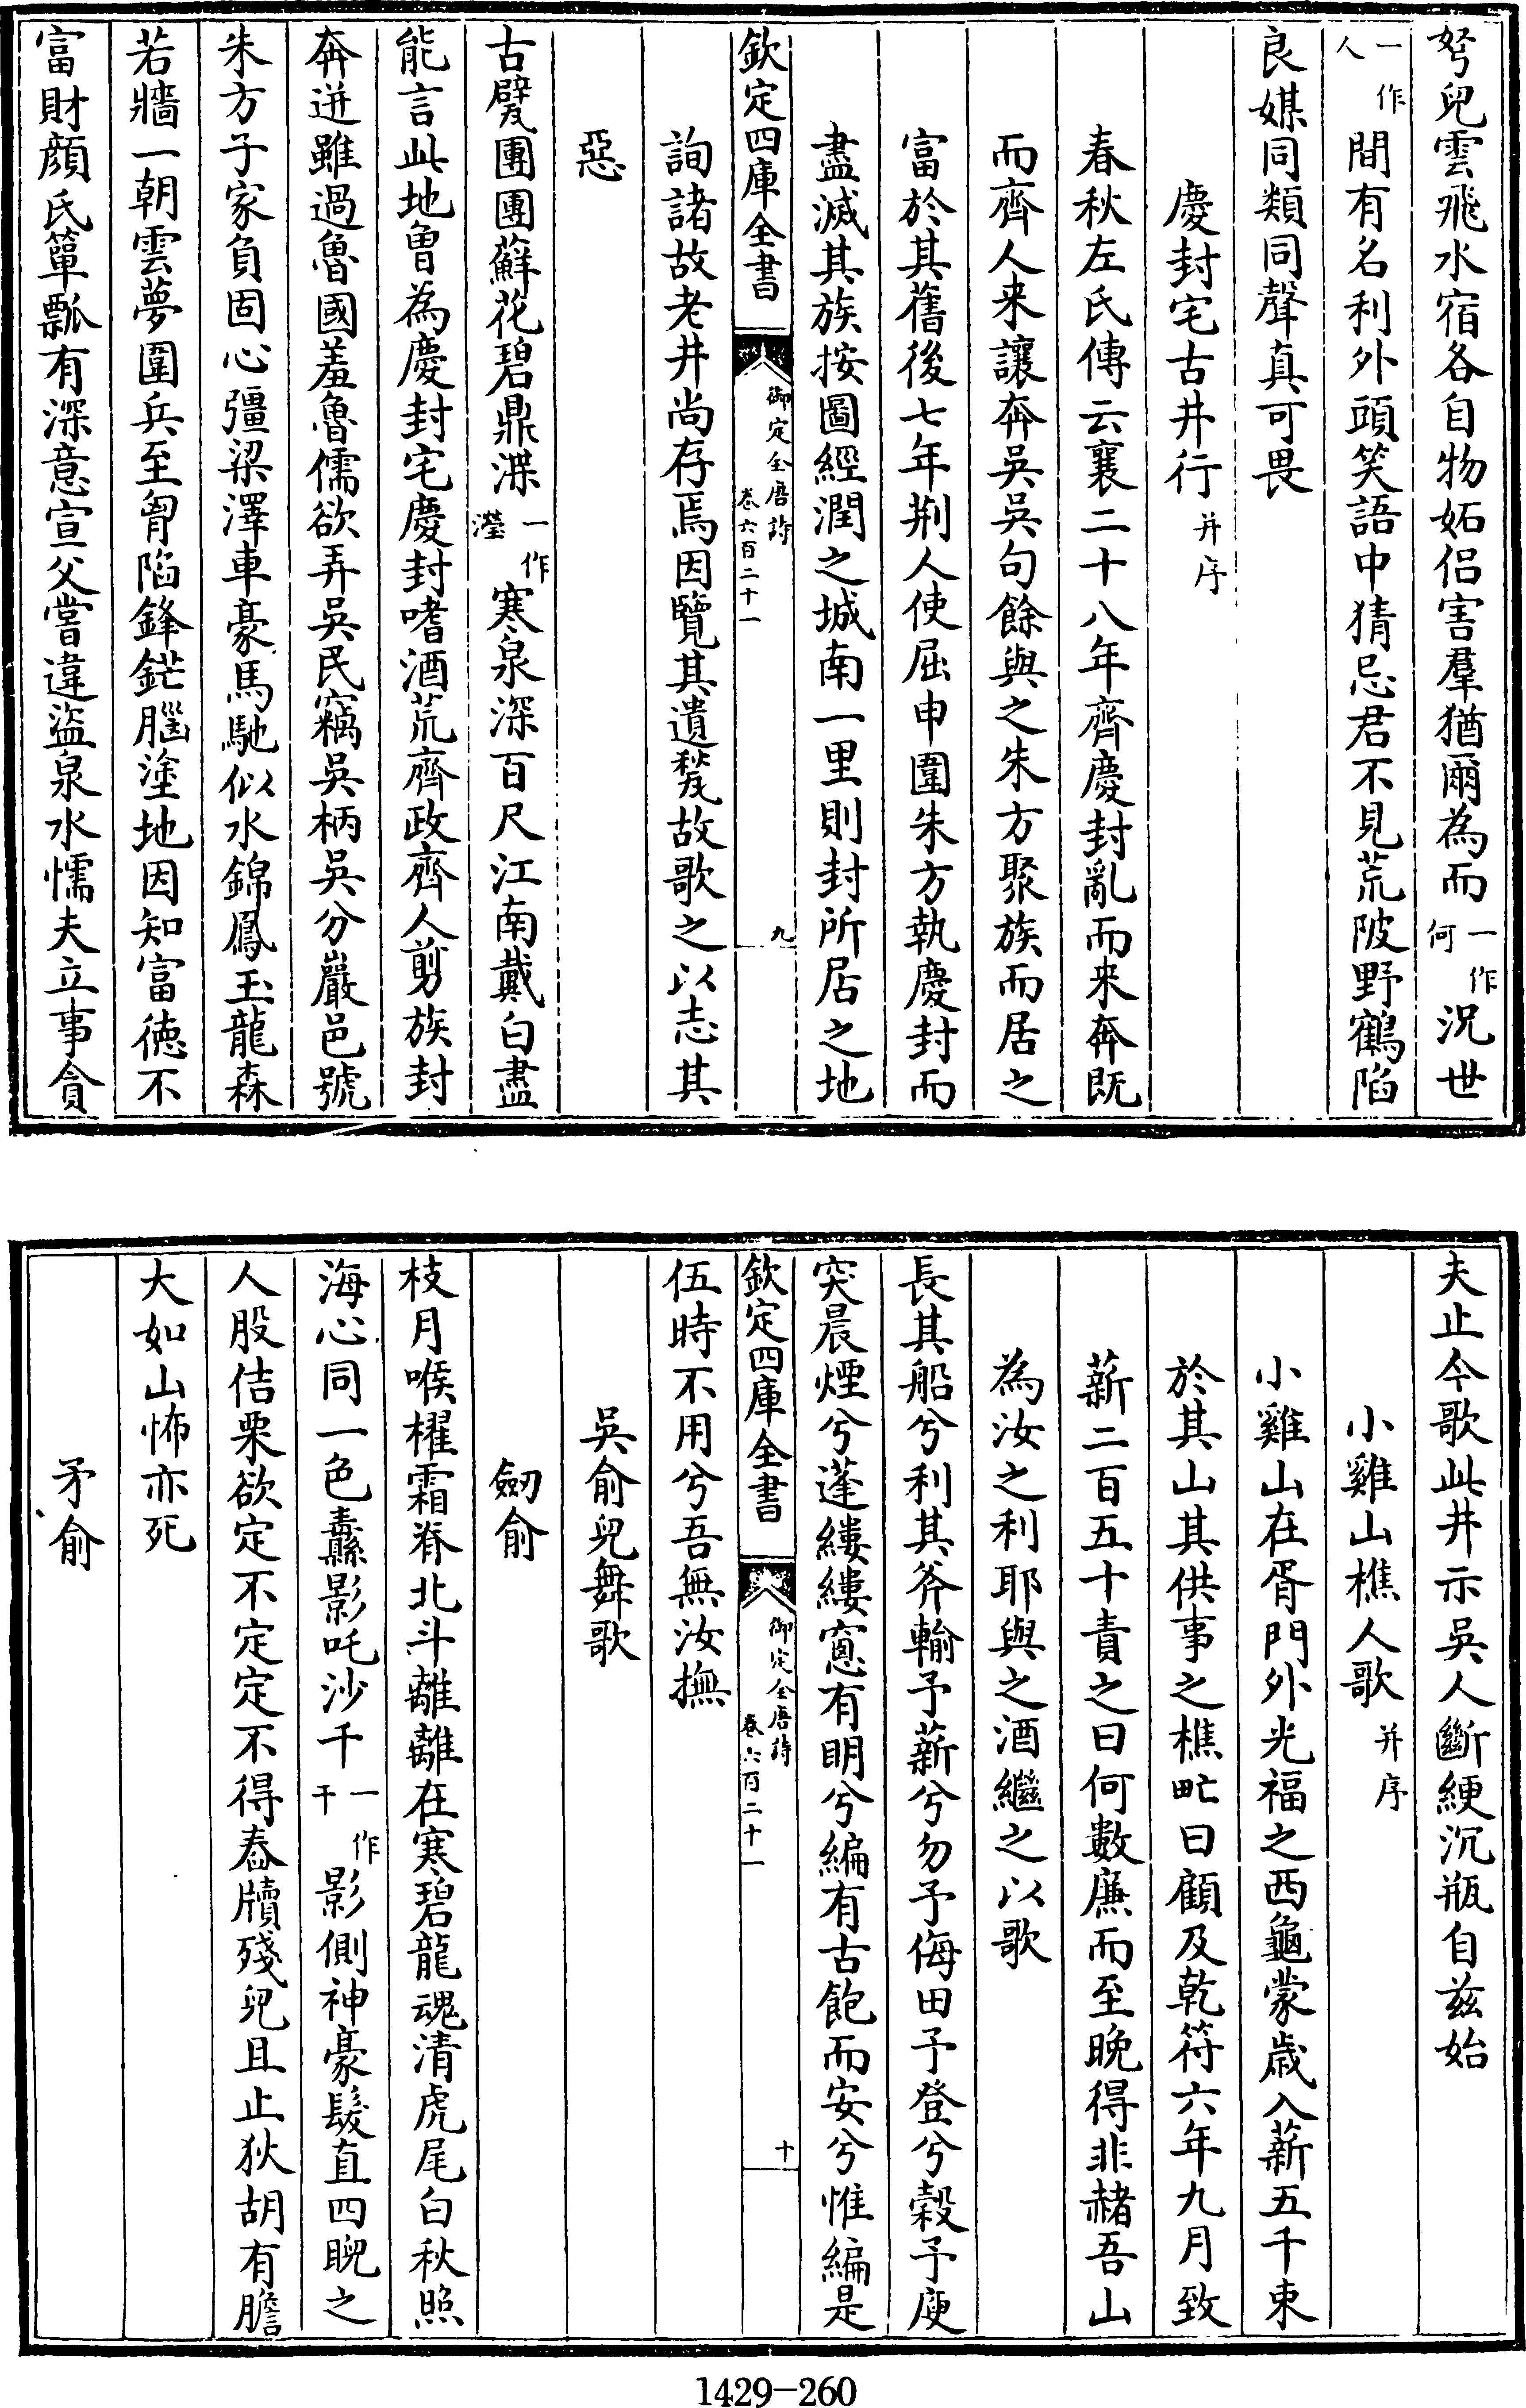 弩兒雲飛水宿各自物妬侶害羣猶爾為而一作何況世
一作人間有名利外頭笑語中猜忌君不見荒陂野鶴陷
良媒同類同聲真可畏
慶封宅古井行并序
春秋左氏傳云襄二十八年齊慶封亂而来奔既
而齊人来讓奔吳吳句餘與之朱方聚族而居之
富於其舊後七年荆人使屈申圍朱方執慶封而
盡滅其族按圖經潤之城南一里則封所居之地
欽定四庫全書
御定全唐詩
卷六百二十一
九
詢諸故老井尚存焉因覽其遺甃故歌之以志其
惡
古甓團團蘚花碧鼎渫一作瀅寒泉深百尺江南戴白盡
能言此地曾為慶封宅慶封嗜酒荒齊政齊人剪族封
奔迸雖過魯國羞魯儒欲弄吳民竊吳柄吳分巖邑號
朱方子家負固心彊梁澤車豪馬馳似水錦鳳玉龍森
若牆一朝雲夢圍兵至胷陷鋒鋩腦塗地因知富徳不
富財顔氏簞瓢有深意宣父嘗違盜泉水懦夫立事貪
夫止今歌此井示吳人斷綆沉瓶自兹始
小雞山樵人歌并序
小雞山在胥門外光福之西龜蒙歳入薪五千束
於其山其供事之樵甿曰顧及乾符六年九月致
薪二百五十責之曰何數廉而至晚得非赭吾山
為汝之利耶與之酒繼之以歌
長其船兮利其斧輸予薪兮勿予侮田予登兮穀予庾
突晨煙兮蓬縷縷窻有明兮編有古飽而安兮惟編是
欽定四庫全書
御定全唐詩
卷六百二十一
十
伍時不用兮吾無汝撫
吳俞兒舞歌
劒俞
枝月喉櫂霜脊北斗離離在寒碧龍魂清虎尾白秋照
海心同一色纛影吒沙千一作干影側神豪髮直四睨之
人股佶栗欲定不定定不得舂牘殘兒且止狄胡有膽
大如山怖亦死
矛俞
1429-260